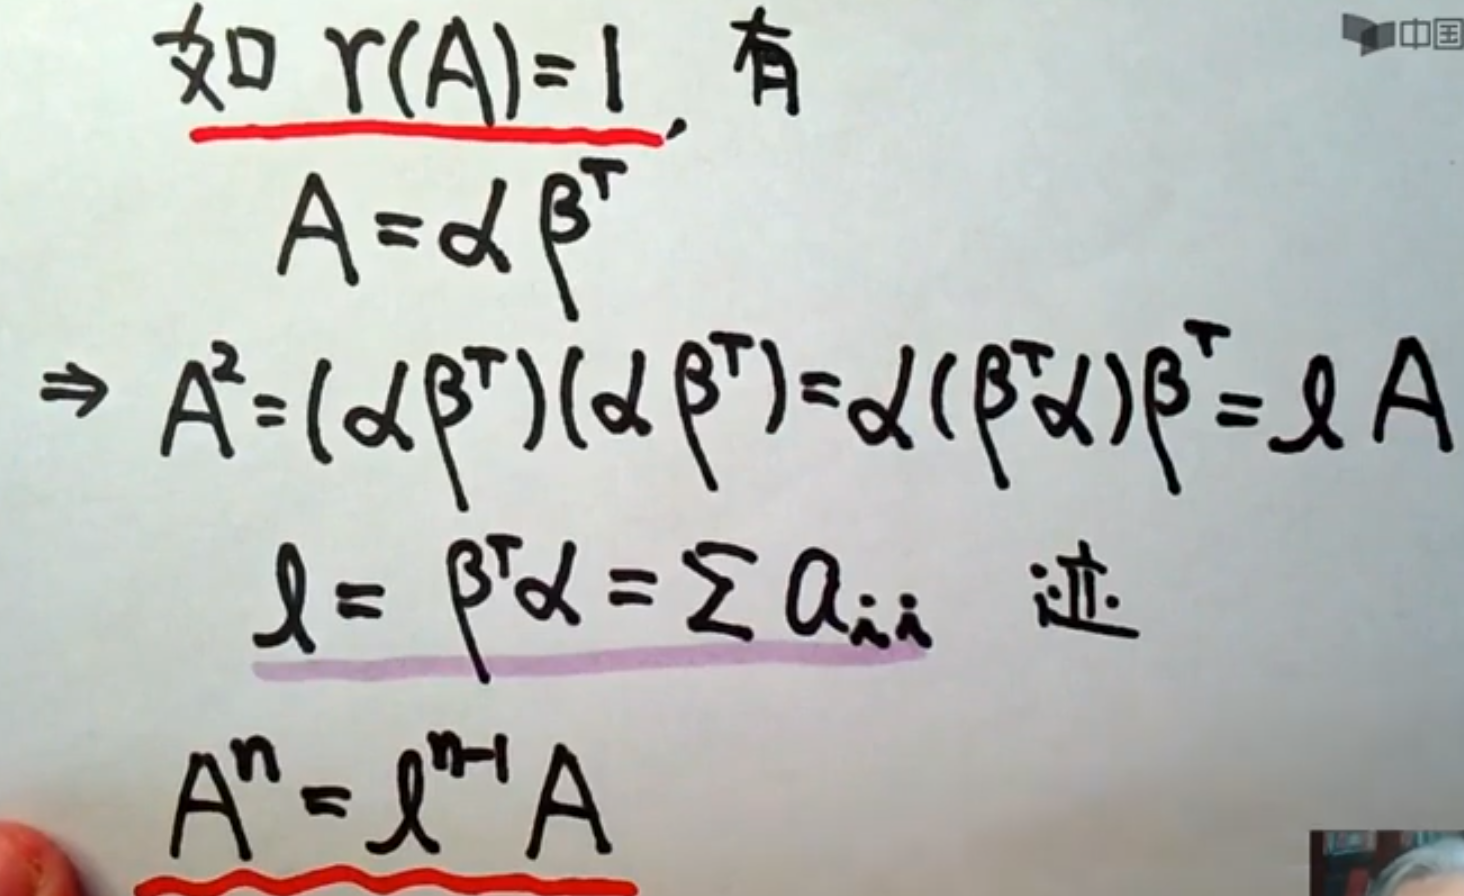 中国
如 r(A)=1, 有
A=αβᵀ
⇒ A²=(αβᵀ)(αβᵀ)=α(βᵀα)βᵀ=lA
l=βᵀα=∑aᵢᵢ 迹
Aⁿ=lⁿ⁻¹A